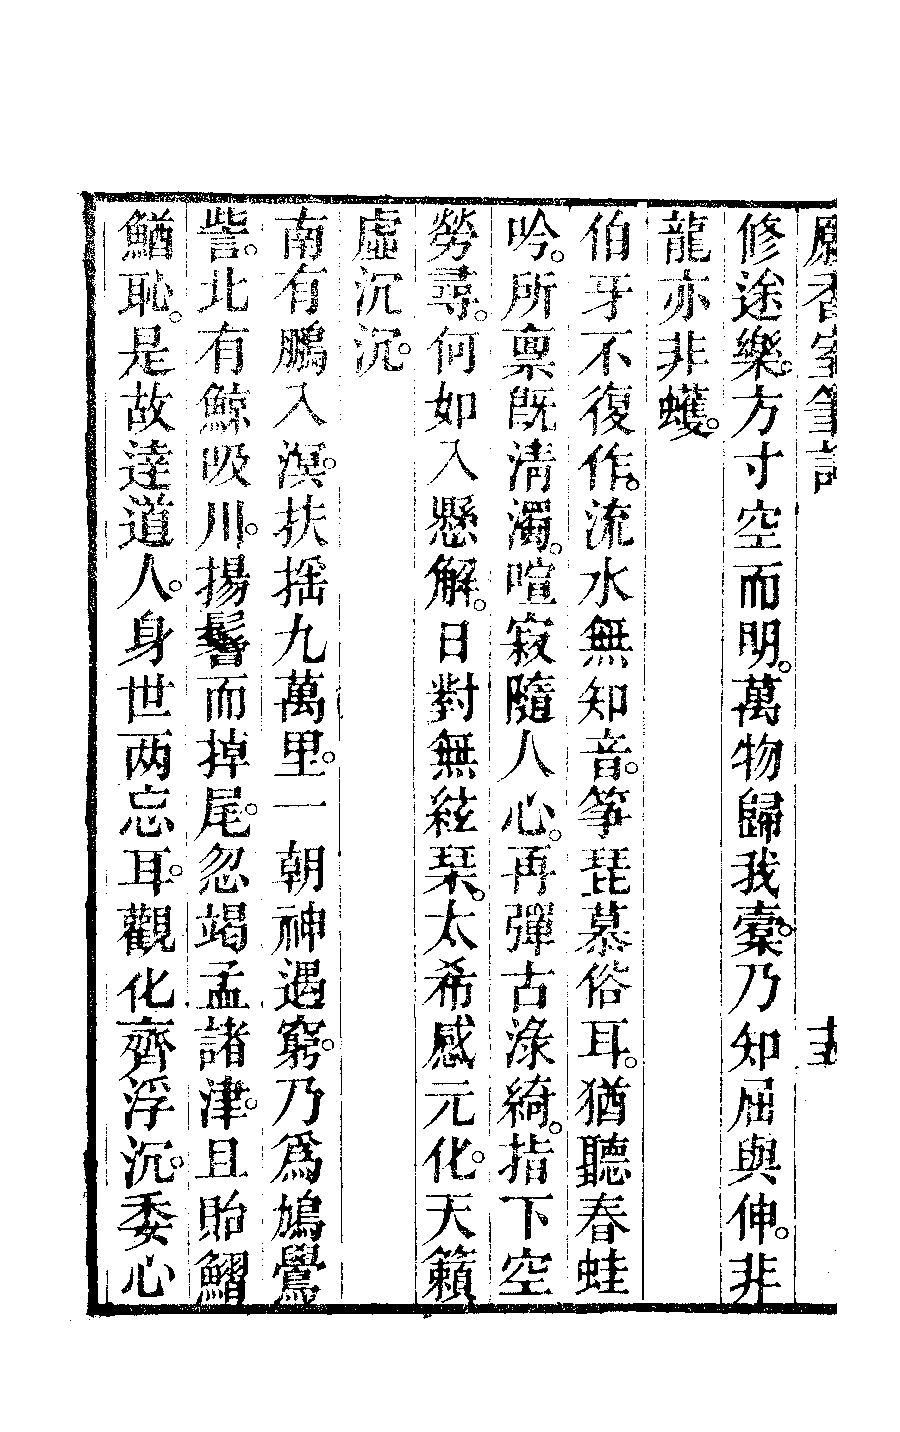 香室筆記 十五
修途樂。方寸空而明。萬物歸我橐。乃知屈與伸。非
龍亦非蠖。
伯牙不復作。流水無知音。箏琵慕俗耳。猶聽春蛙
吟。所稟旣清濁。喧寂隨人心。再彈古淥綺。指下空
勞尋。何如入懸解。日對無絃琹。太希感元化。天籟
虛沉沉。
南有鵬入溟。扶搖九萬里。一朝神遇窮。乃爲鳩鷽
訾。北有鯨吸川。揚鬐而掉尾。忽竭孟諸津。且貽鰼
鰌恥。是故達道人。身世两忘耳。觀化齊浮沉。委心